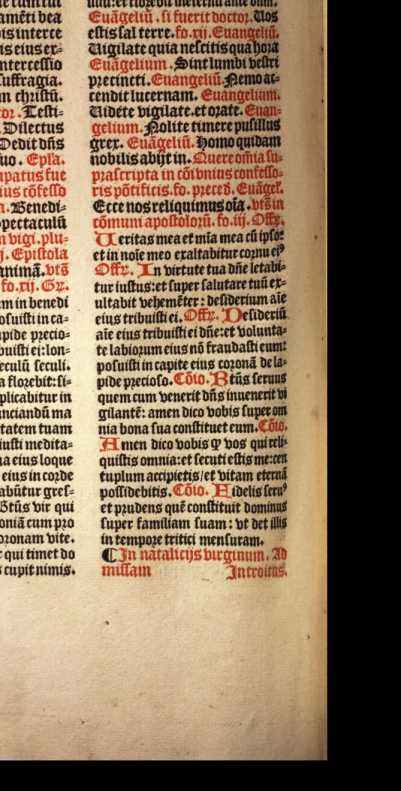 amēti bea
is interce
is eius ex-
ntercessio
suffragia.
m christū.
tor. Testi-
Dilectus
Dedit dñs
suo. Epl̄a.
upatus fue
ius cōfesso
a. Benedi-
pectaculū
n vigi. plu-
j. Epistola
animā. vt̄s
fo. xij. Gr̄.
m in benedi
osuisti in ca-
apide precio-
buisti ei: lon-
eculū seculi.
a florebit: si-
plicabitur in
nciandū ma
tatem tuam
iusti medita-
na eius loque
eius in corde
abūtur gres-
Bt̄us vir qui
oniā cum pro
oronam vite.
r qui timet do
s cupit nimis.
Euāgeliū. si fuerit doctor. Uos
estis sal terre. fo. xij. Euangeliū.
Uigilate quia nescitis qua hora
Euāgelium. Sint lumbi vestri
precincti. Euangeliū. Nemo ac-
cendit lucernam. Euangelium.
Uidete vigilate. et orate. Euan-
gelium. Nolite timere pusillus
grex. Euāgeliū. Homo quidam
nobilis abijt in. Quere om̄ia su-
prascripta in cōivnius confesso-
ris pōtificis. fo. preced. Euāgel̄.
Ecce nos reliquimus oīa. vt̄s in
cōmuni apostolorū. fo. iij. Offr̄.
Ueritas mea et mīa mea cū ipso:
et in noīe meo exaltabitur cornu ei⁹
Offr̄. In virtute tua dñe letabi-
tur iustus: et super salutare tuū ex-
ultabit vehemēter: desiderium aīe
eius tribuisti ei. Offr̄. Desideriū
aīe eius tribuisti ei dñe: et volunta-
te labiorum eius nō fraudasti eum:
posuisti in capite eius coronā de la-
pide precioso. Cōio. Bt̄us seruus
quem cum venerit dñs inuenerit vi
gilantē: amen dico vobis super om
nia bona sua constituet eum. Cōio.
Amen dico vobis ꝙ vos qui reli-
quistis omnia: et secuti estis me: cen
tuplum accipietis / et vitam eternā
possidebitis. Cōio. Fidelis seru⁹
et prudens quē constituit dominus
super familiam suam: vt det illis
in tempore tritici mensuram.
¶ In natalicijs virginum. Ad
missam Introitus.